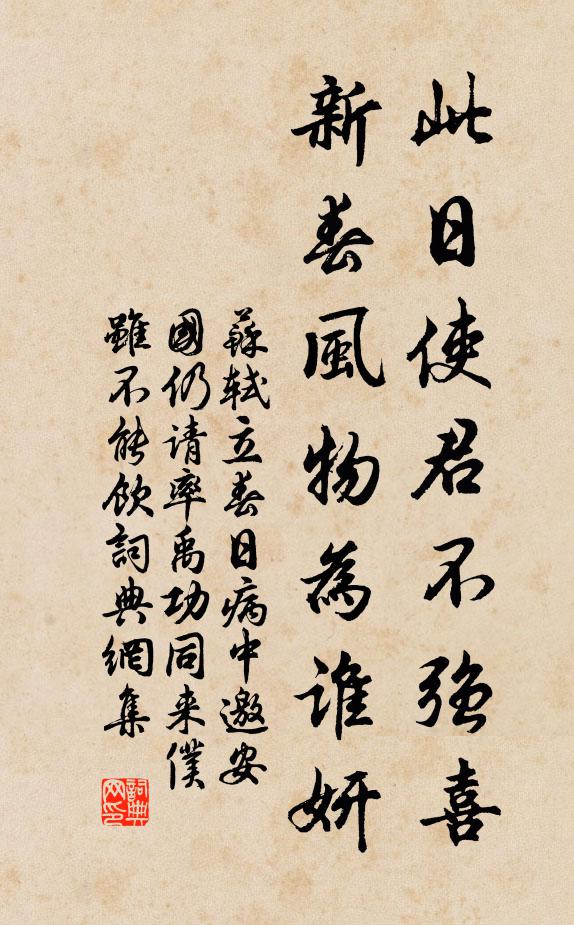 此日使君不强喜
新春風物為誰妍
蘇軾立春日病中邀安
國仍請率禹功同来僕
雖不能飲詞典網集
詞典
网印